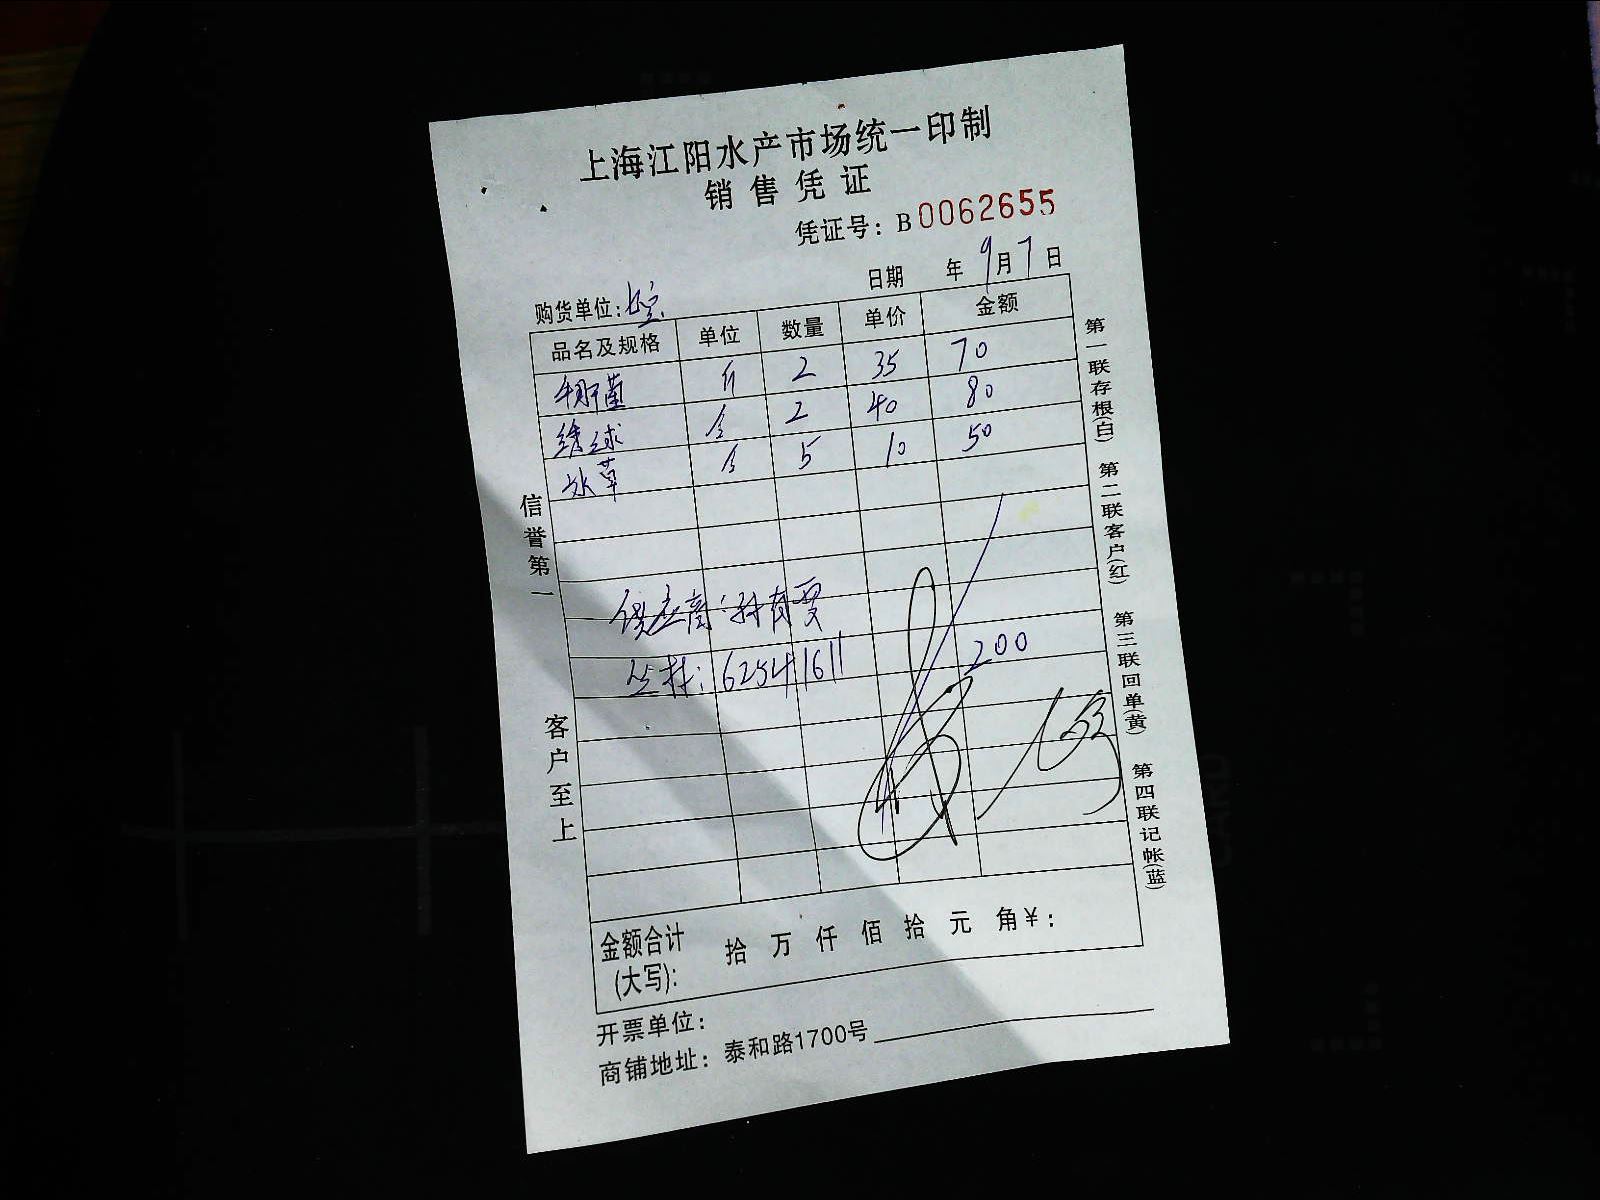 上海江阳水产市场统一印制
销售凭证
凭证号：B 0062655
日期 年 9月7日
购货单位：
品名及规格 单位 数量 单价 金额
2 35 70
绣球 个 2 40 80
水草 个 5 10 50
供应商：孙有
200
信誉第一
客户至上
第一联存根(白) 第二联客户(红) 第三联回单(黄) 第四联记帐(蓝)
金额合计 拾 万 仟 佰 拾 元 角￥：
(大写)：
开票单位：
商铺地址：泰和路1700号